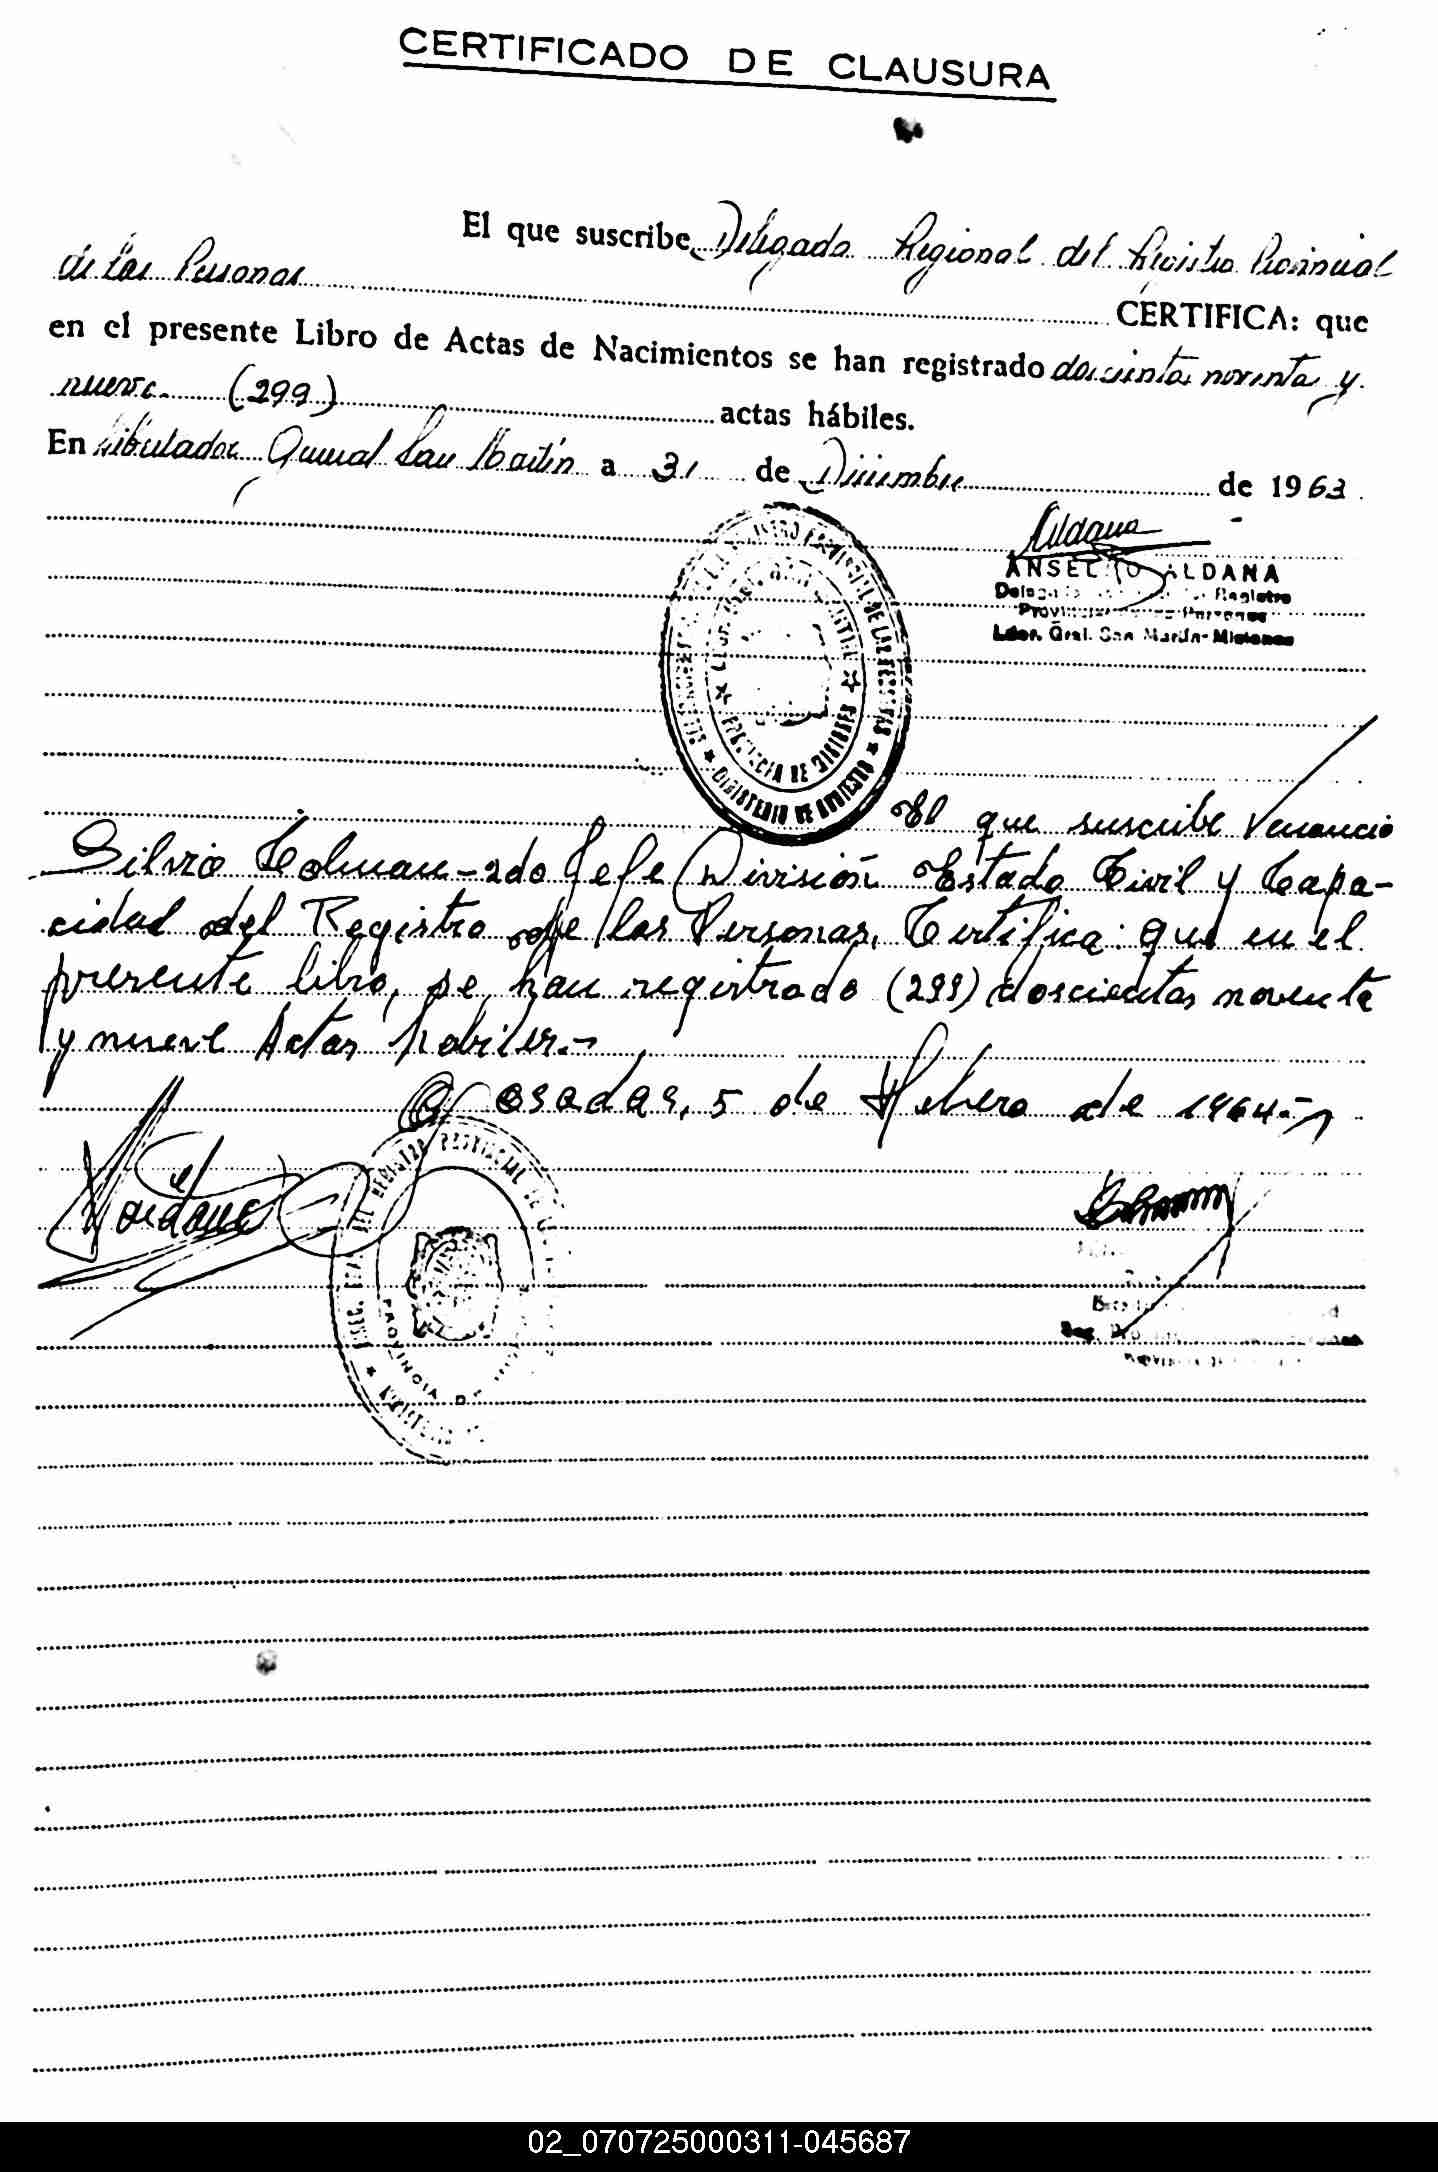 CERTIFICADO DE CLAUSURA
El que suscribe Delegado Regional del Registro Provincial
de las Personas CERTIFICA: que
en el presente Libro de Actas de Nacimientos se han registrado doscientas noventa y
nueve (299) actas hábiles.
En Libertador General San Martín a 31 de Diciembre de 1963
Aldana
ANSELMO ALDANA
Registro
Personas
Lder. Gral. San Martín-Misiones
REGISTRO PROVINCIAL DE LAS PERSONAS
MINISTERIO DE GOBIERNO
PROVINCIA DE MISIONES
El que suscribe Venancio
Silvio Colman-2do Jefe División Estado Civil y Capa-
cidad del Registro de las Personas, Certifica: que en el
presente libro, se han registrado (299) doscientas noventa
y nueve Actas habiles.-
Posadas, 5 de Febrero de 1964.-
DEL REGISTRO PROVINCIAL DE
PROVINCIA DE
02_070725000311-045687